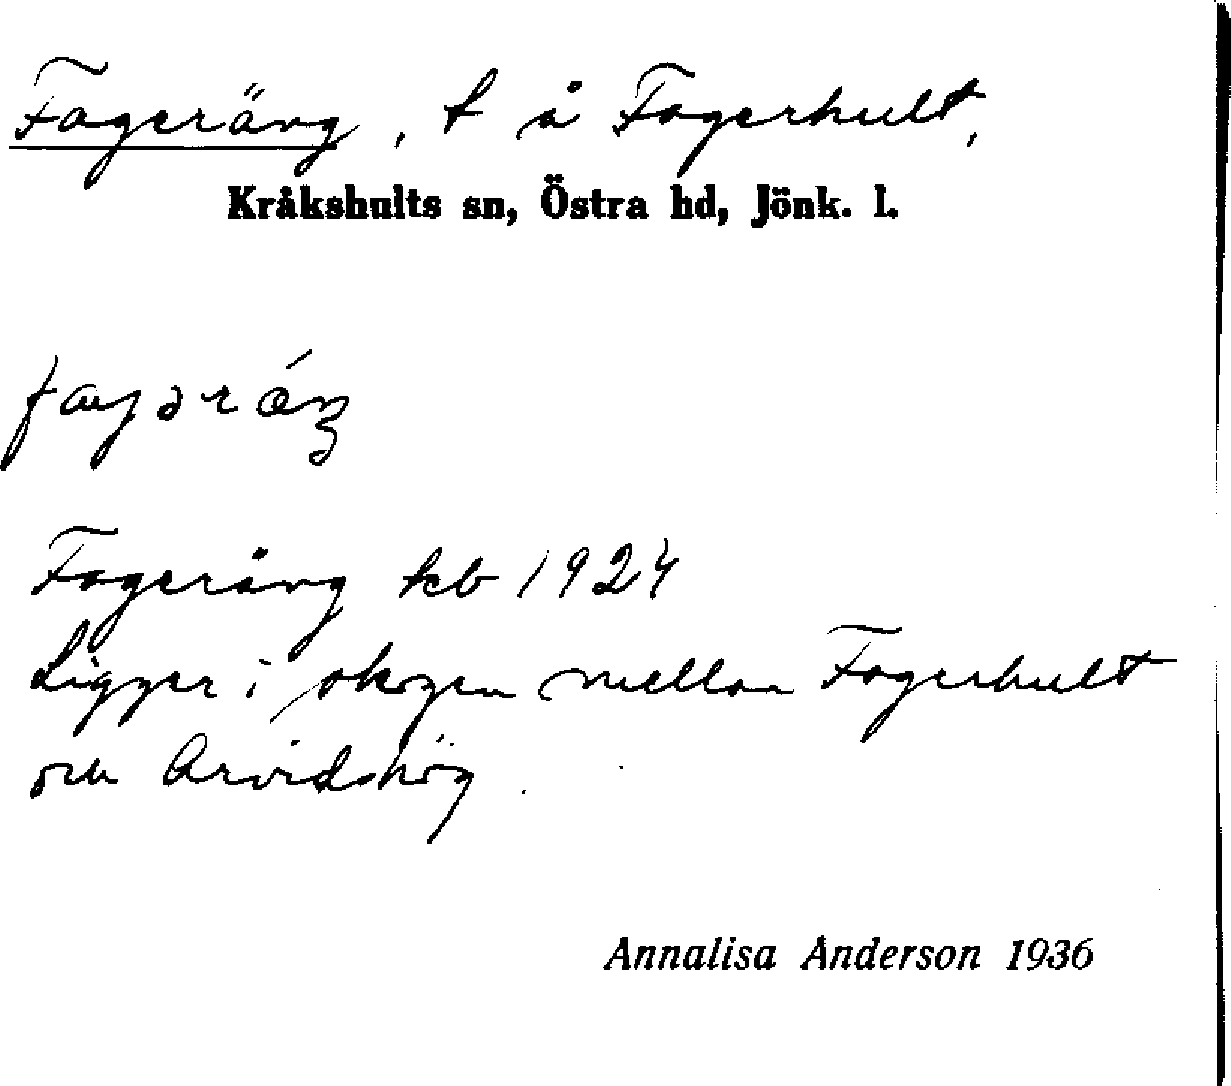 Fageräng, t å Fagerhult,
Kråkshults sn, Östra hd, Jönk. l.
Fageräng kb 1924
Ligger i skogen mellan Fagerhult
och Arvidshög.
Annalisa Anderson 1936